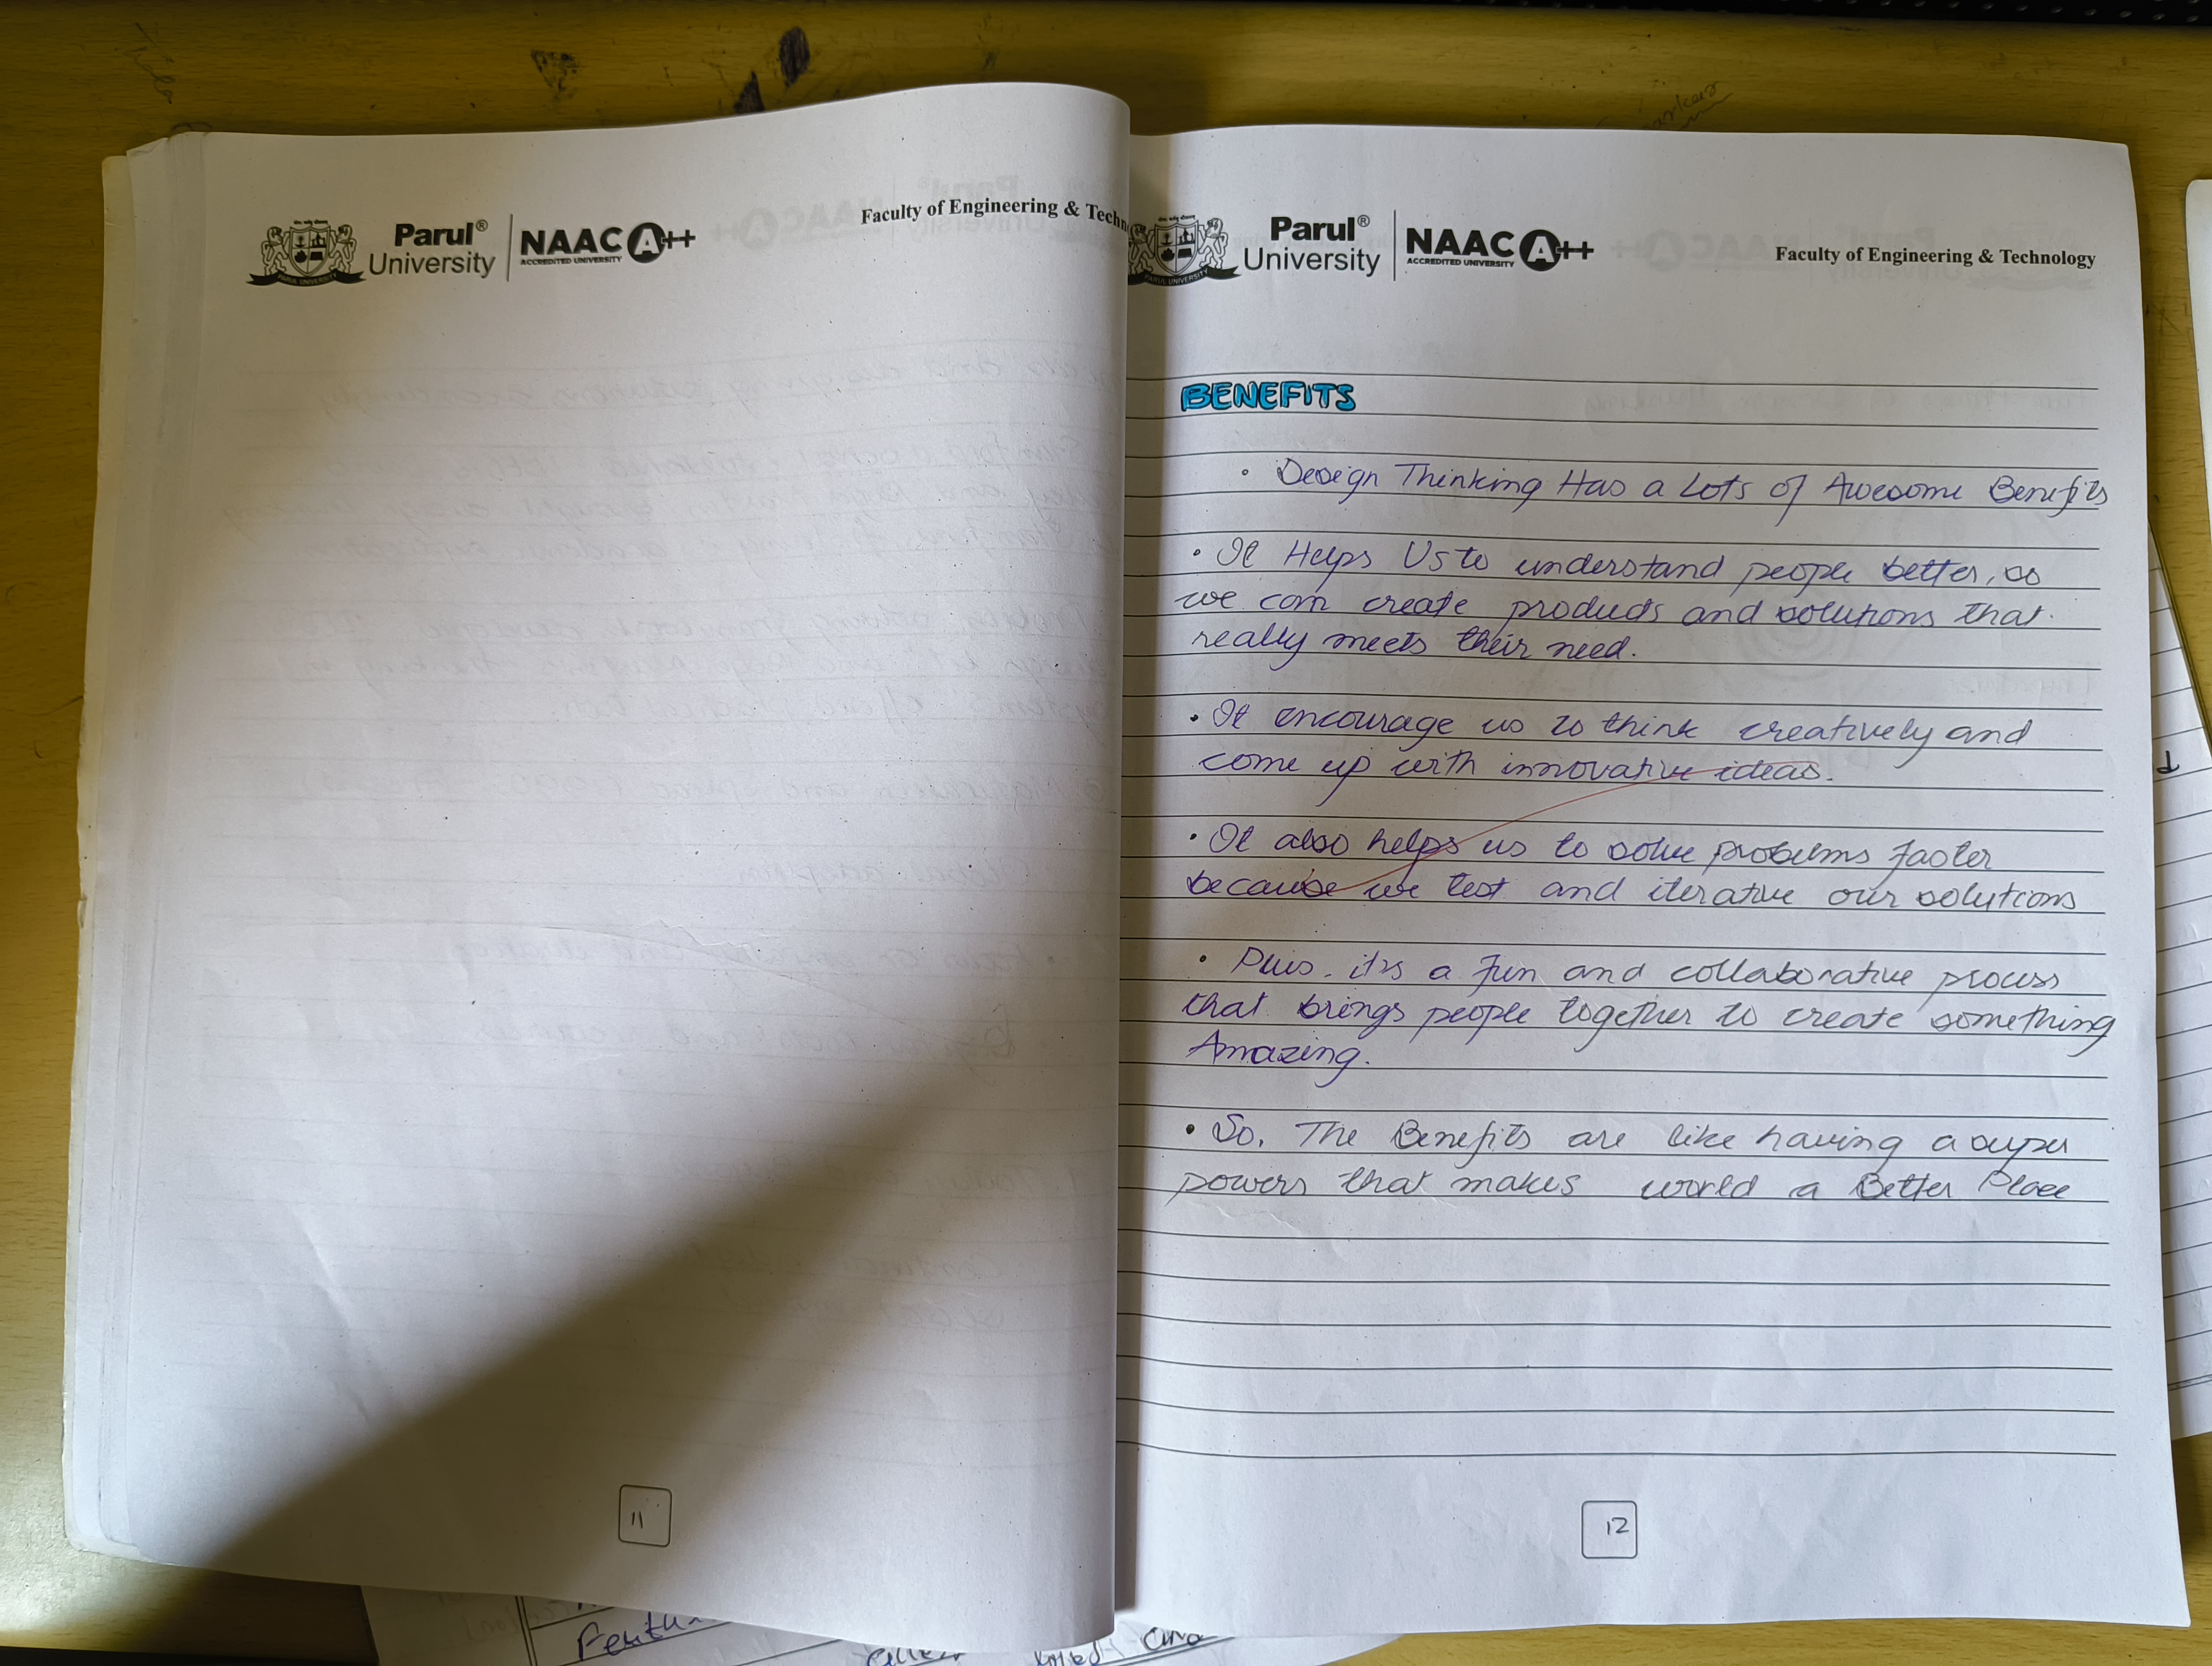 Parul®
University
NAAC A++
ACCREDITED UNIVERSITY
Faculty of Engineering & Techn
11
Parul®
University
NAAC A++
ACCREDITED UNIVERSITY
Faculty of Engineering & Technology
BENEFITS
• Design Thinking Has a Lots of Awesome Benefits
• It Helps Us to understand people better, so
we can create products and solutions that
really meets their need.
• It encourage us to think creatively and
come up with innovative ideas.
• It also helps us to solve problems faster
because we test and iterative our solutions
• Plus, it's a fun and collaborative process
that brings people together to create something
Amazing.
• So, The Benefits are like having a super
powers that makes world a Better Place
12